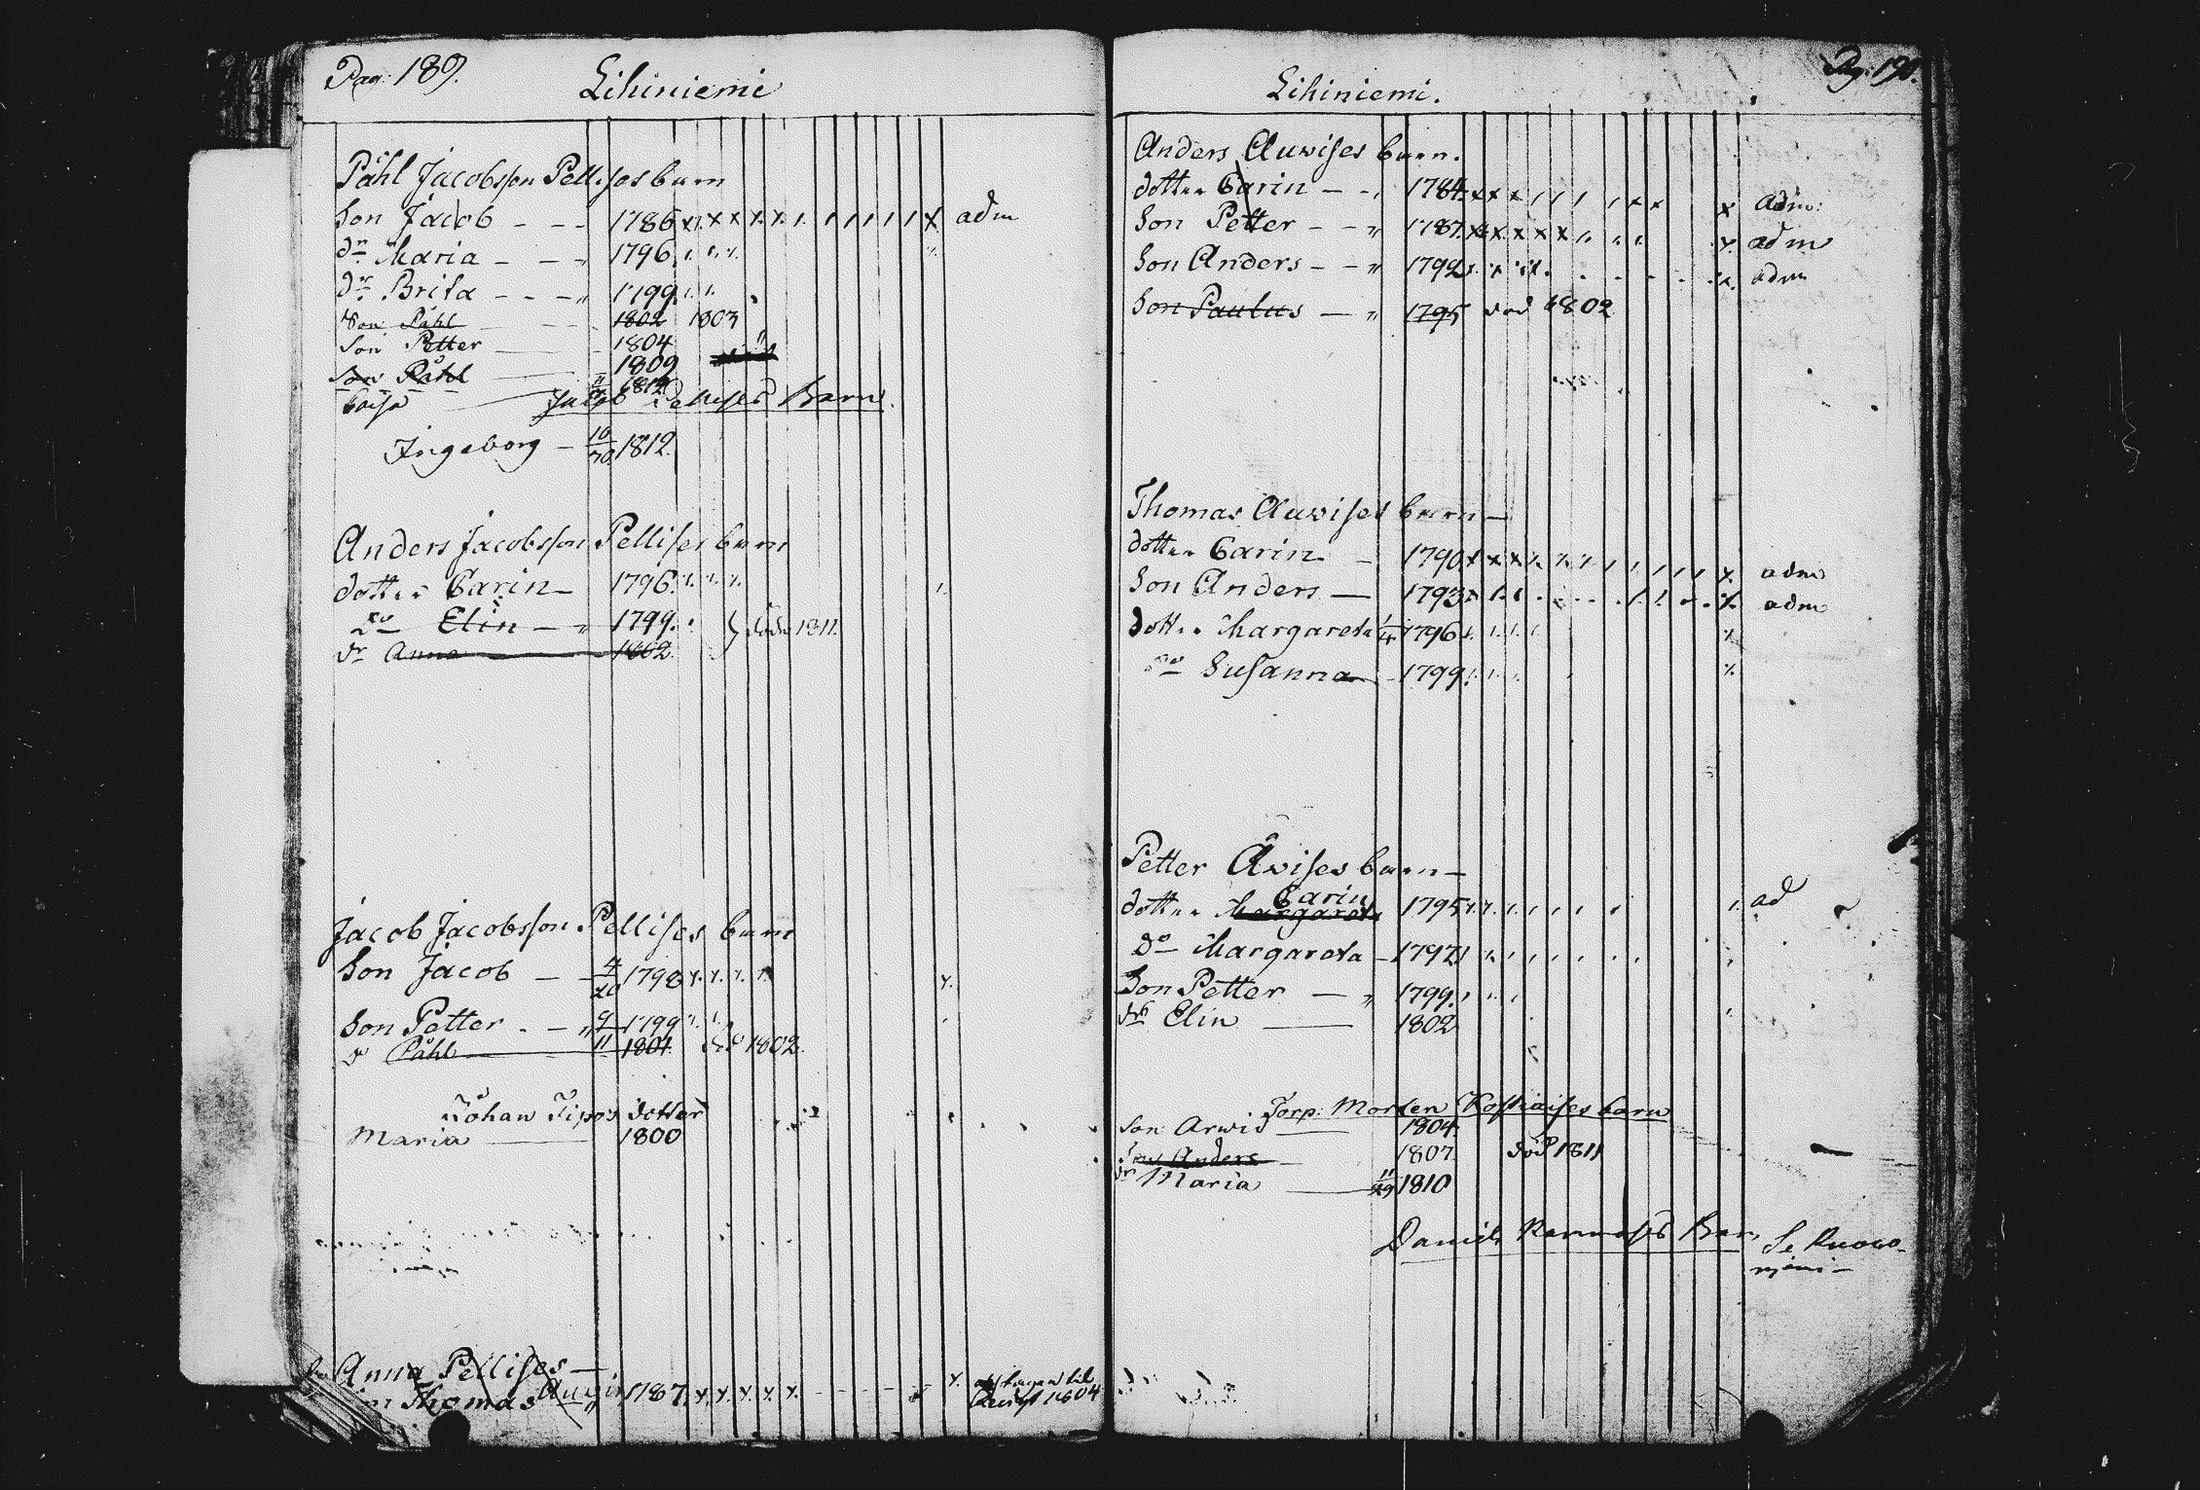 Pag: 189.
Lihiniemi
Påhl Jacobsson Pellises barn
Son Jacob - - - 1786 x x x x x x adm
dr Maria - - " 1796
dr Brita - - - " 1799
Son Påhl 1802 1803
Son Petter 1804
Son Påhl 1809
Caisa 11 1812
Jacob Pellises Barn
Ingeborg - 10/70 1812.
Anders Jacobsson Pellises barn
dotter Carin - 1796
Do Elin - " 1799. döda 1811.
dr Anna 1802.
Jacob Jacobsson Pellises barn
Son Jacob - - 4/20 1798
Son Petter - - " 9 1799
dr Påhl 11 1801. död 1802.
Johan dotter
Maria 1800
Anna Pellises
son Thomas Auvin 1787
1804
Pag: 190.
Lihiniemi.
Anders Auvises barn.
dotter Carin - - " 1784 x x x x x x adm:
Son Petter - - " 1787. x x x x x x adm
Son Anders - - " 1792 adm
Son Paulus - " 1795 död 1802
Thomas Auvises barn -
dotter Carin - 1790 x x x adm
Son Anders - 1793 adm
dotter Margareta 1/4 1796
Do Susanna - 1799
Petter Åvises barn -
Carin
dotter Margareta 1795 ad
Do Margareta - 1797
Son Petter - " 1799.
dr Elin 1802
Torp: Morten barn
Son Arwid 1804
Son Anders 1807 död 1811
dr Maria 11/29 1810
Daniel Barn